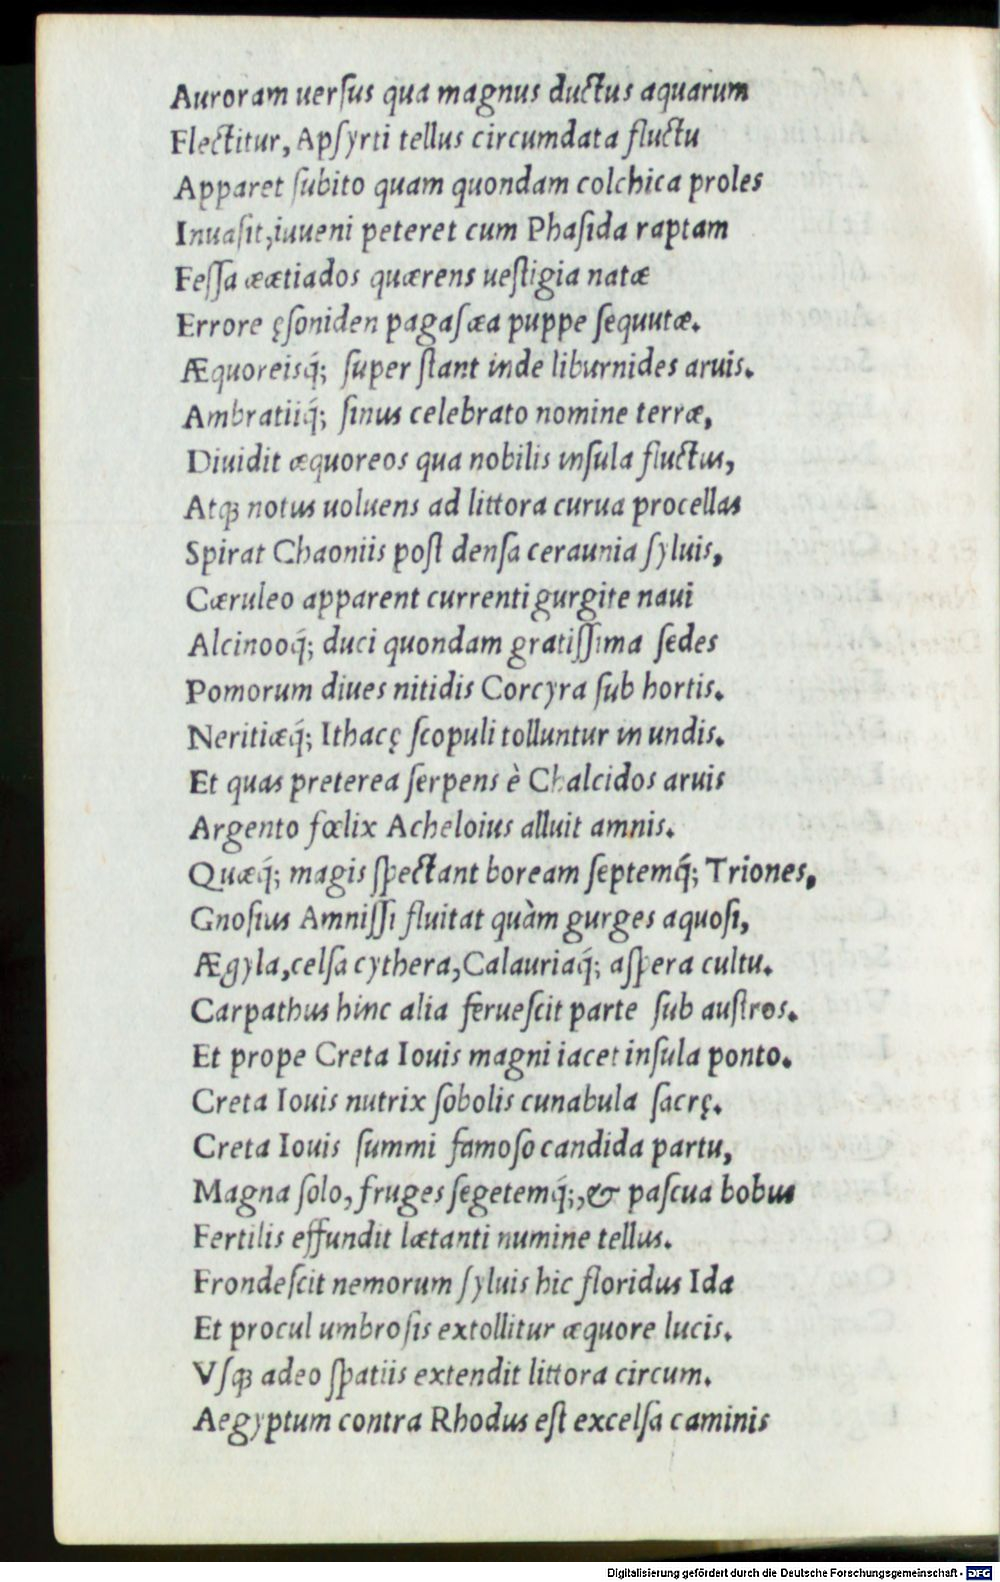 Auroram uerſus qua magnus ductus aquarum
Flectitur, Apſyrti tellus circumdata fluctu
Apparet ſubito quam quondam colchica proles
Inuaſit,iuueni peteret cum Phaſida raptam
Feſſa ææetiados quærens ueſtigia natæ
Errore ęſoniden pagaſæa puppe ſequutæ.
Æquoreisq́; ſuper ſtant inde liburnides aruis.
Ambratiiq́; ſinus celebrato nomine terræ,
Diuidit æquoreos qua nobilis inſula fluctus,
Atqꝫ notus uoluens ad littora curua procellas
Spirat Chaoniis poſt denſa ceraunia ſyluis,
Cæruleo apparent currenti gurgite naui
Alcinooq́; duci quondam gratiſſima ſedes
Pomorum diues nitidis Corcyra ſub hortis.
Neritiæq́; Ithacę ſcopuli tolluntur in undis.
Et quas preterea ſerpens è Chalcidos aruis
Argento fœlix Acheloius alluit amnis.
Quæq́; magis ſpectant boream ſeptemq́; Triones,
Gnoſius Amniſſi fluitat quàm gurges aquoſi,
Ægyla,celſa cythera,Calauriaq́; aſpera cultu.
Carpathus hinc alia ferueſcit parte ſub auſtros.
Et prope Creta Iouis magni iacet inſula ponto.
Creta Iouis nutrix ſobolis cunabula ſacrę.
Creta Iouis ſummi famoſo candida partu,
Magna ſolo, fruges ſegetemq́;,& paſcua bobus
Fertilis effundit lætanti numine tellus.
Frondeſcit nemorum ſyluis hic floridus Ida
Et procul umbroſis extollitur æquore lucis.
Vſqꝫ adeo ſpatiis extendit littora circum.
Aegyptum contra Rhodus eſt excelſa caminis
Digitalisierung gefördert durch die Deutsche Forschungsgemeinschaft - DFG